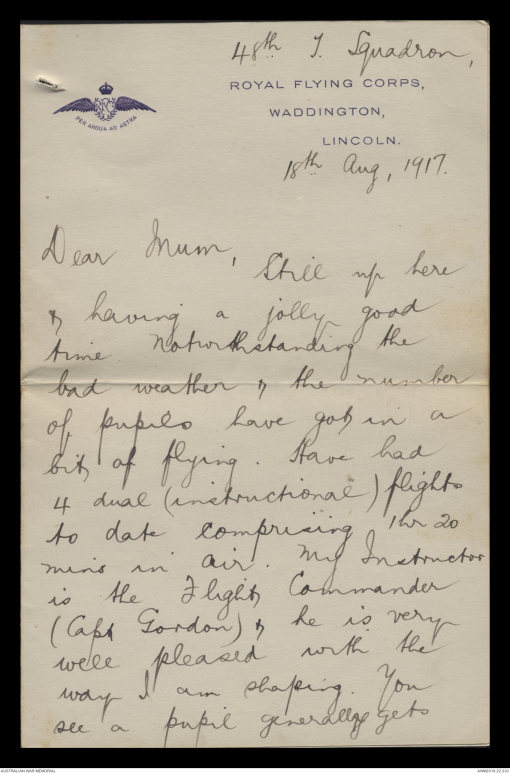 48th T. Squadron,
ROYAL FLYING CORPS,
WADDINGTON,
LINCOLN.
PER ARDUA AD ASTRA
18th Aug, 1917.
Dear Mum,
Still up here
& having a jolly good
time Notwithstanding the
bad weather & the number
of pupils have got in a
bit of flying. Have had
4 dual (instructional) flights
to date comprising 1hr 20
mins in air. My Instructor
is the Flight Commander
(Capt Gordon) & he is very
well pleased with the
way I am shaping. You
see a pupil generally gets
AUSTRALIAN WAR MEMORIAL